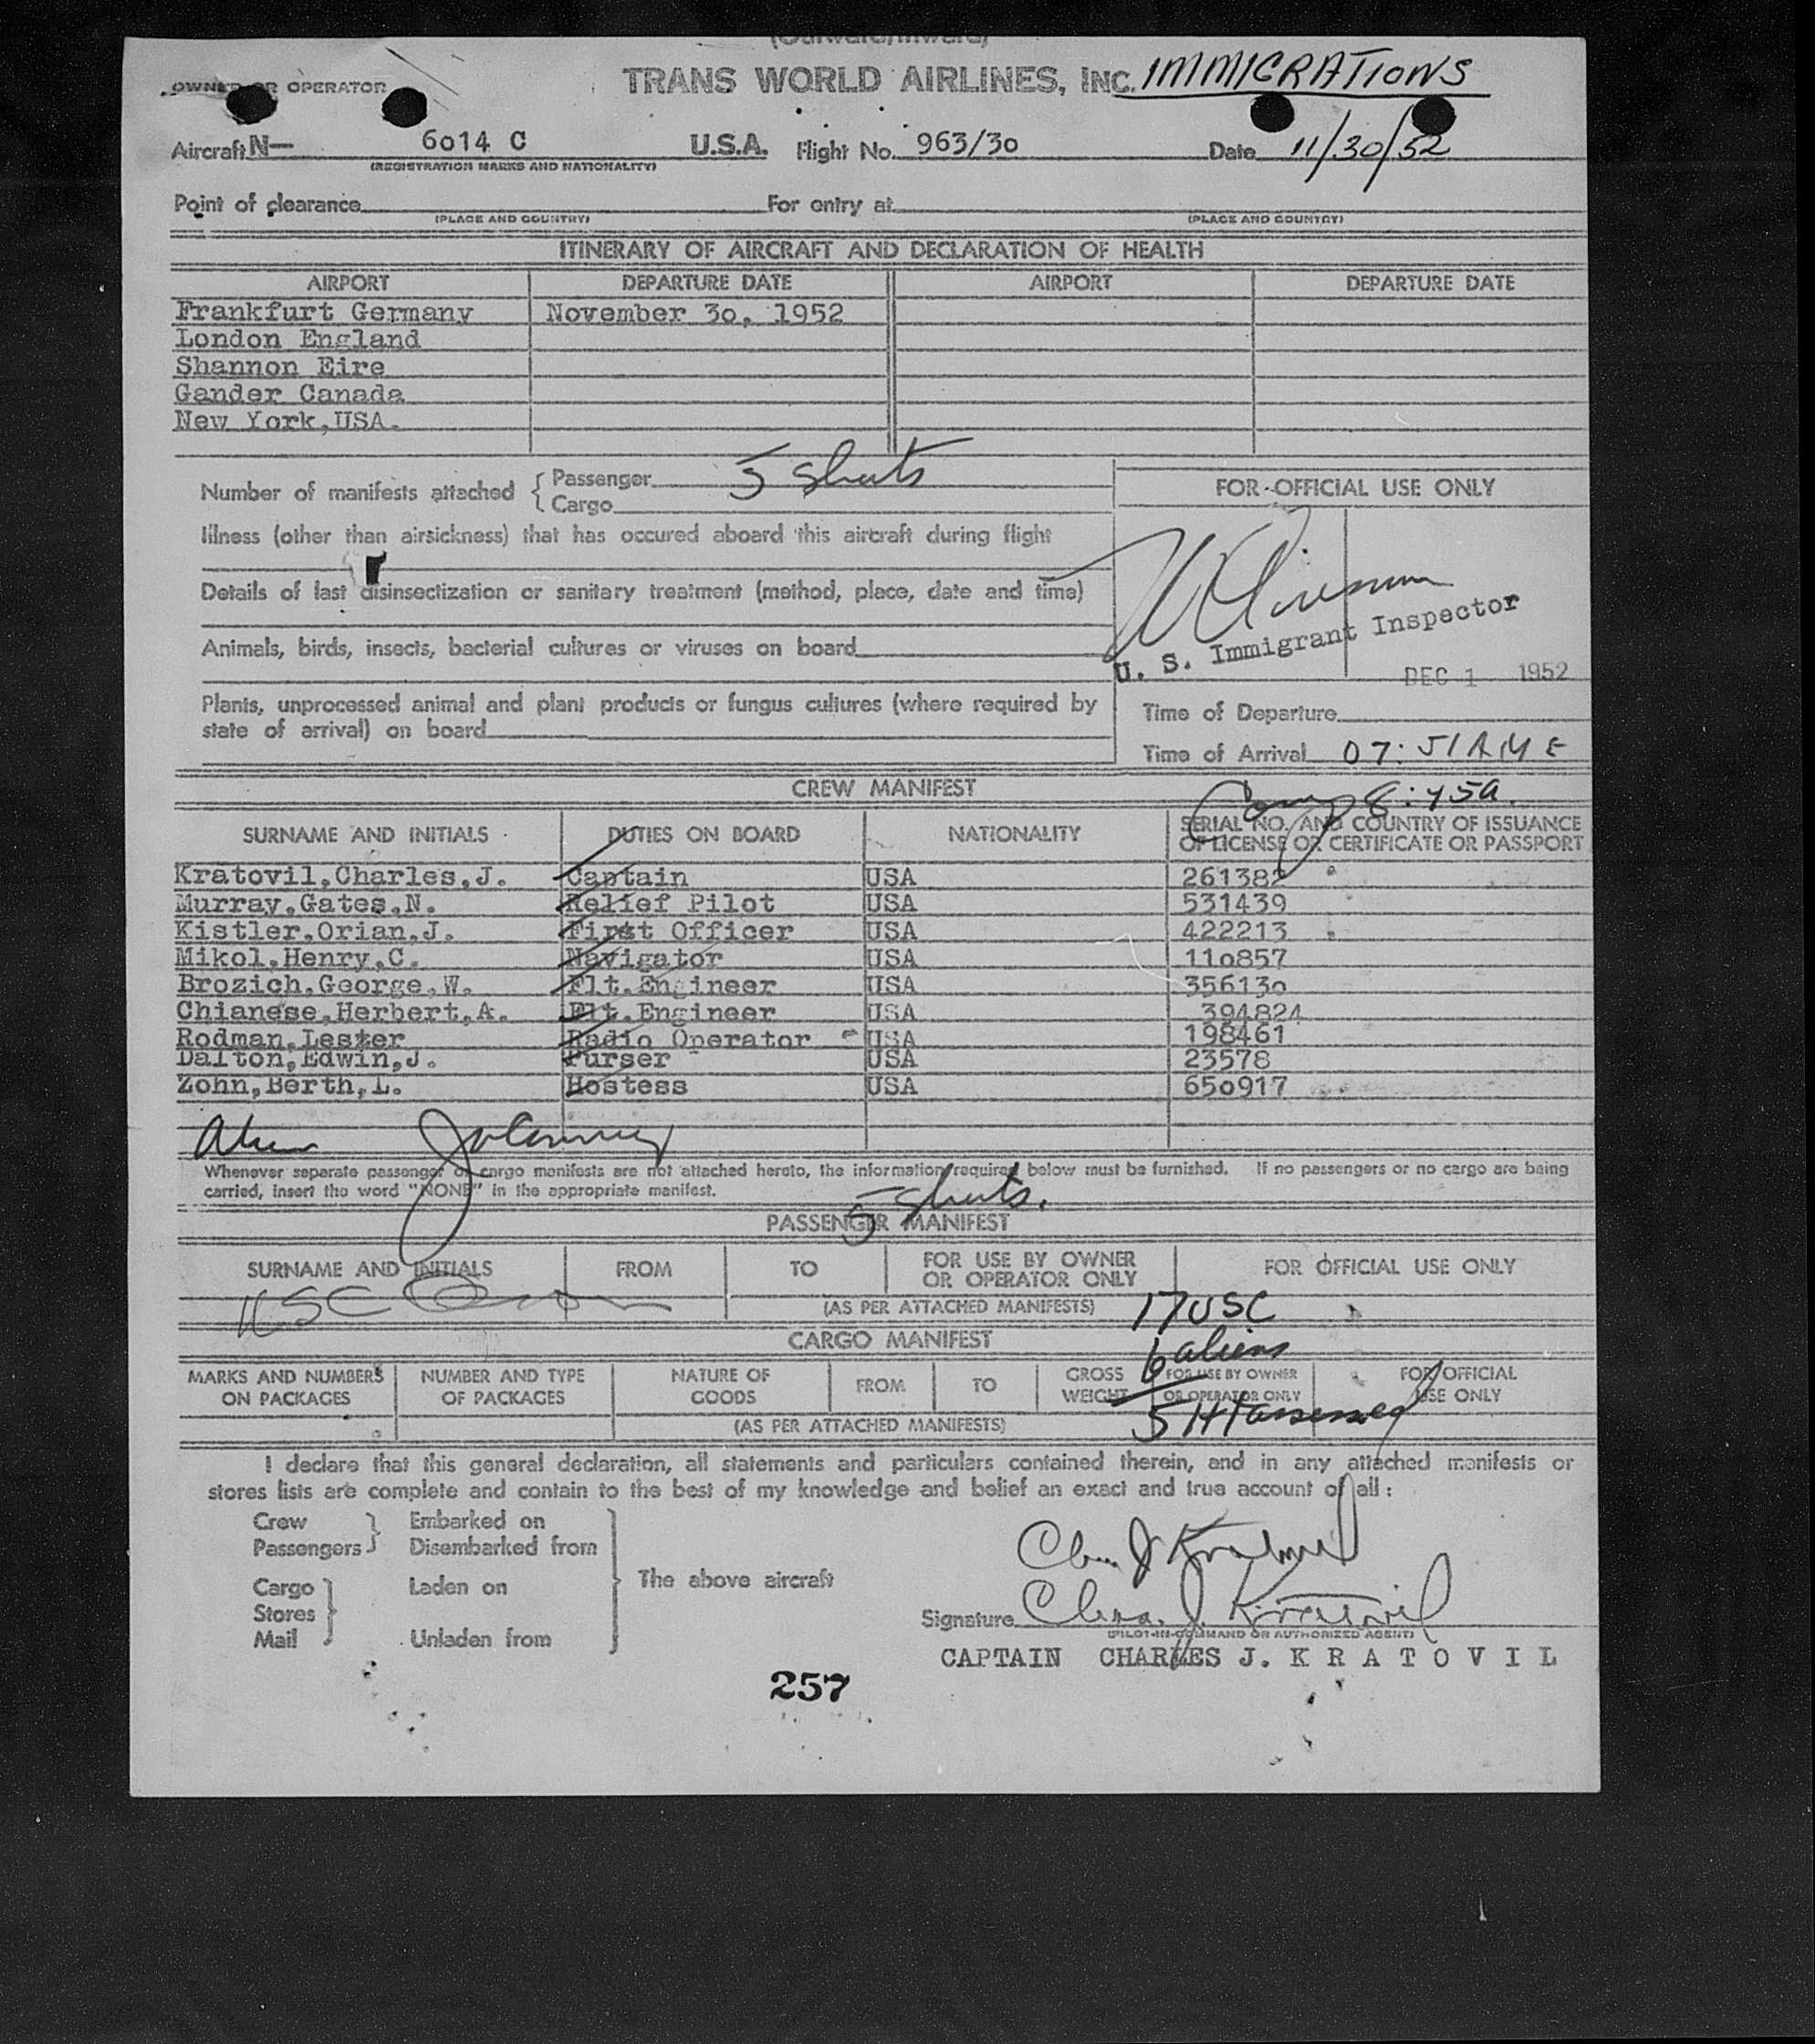 (Outward/Inward)
OWNER OR OPERATOR TRANS WORLD AIRLINES, INC. IMMIGRATIONS
Aircraft N— 6o14 C U.S.A. Flight No. 963/3o Date 11/30/52
(REGISTRATION MARKS AND NATIONALITY)
Point of clearance For entry at
(PLACE AND COUNTRY) (PLACE AND COUNTRY)
ITINERARY OF AIRCRAFT AND DECLARATION OF HEALTH
AIRPORT DEPARTURE DATE AIRPORT DEPARTURE DATE
Frankfurt Germany November 3o, 1952
London England
Shannon Eire
Gander Canada
New York,USA.
Number of manifests attached { Passenger 5 sheets
Cargo
FOR OFFICIAL USE ONLY
Illness (other than airsickness) that has occured aboard this aircraft during flight
Details of last disinsectization or sanitary treatment (method, place, date and time)
U. S. Immigrant Inspector
Animals, birds, insects, bacterial cultures or viruses on board
DEC 1 1952
Plants, unprocessed animal and plant products or fungus cultures (where required by
state of arrival) on board
Time of Departure
Time of Arrival 07:51 AM E
CREW MANIFEST
8:45a.
SURNAME AND INITIALS DUTIES ON BOARD NATIONALITY SERIAL NO. AND COUNTRY OF ISSUANCE
OF LICENSE OR CERTIFICATE OR PASSPORT
Kratovil,Charles,J. Captain USA 261382
Murray,Gates,N. Relief Pilot USA 531439
Kistler,Orian,J. First Officer USA 422213
Mikol,Henry,C. Navigator USA 11o857
Brozich,George,W. Flt.Engineer USA 35613o
Chianese,Herbert,A. Flt.Engineer USA 394824
Rodman,Lester Radio Operator USA 198461
Dalton,Edwin,J. Purser USA 23578
Zohn,Berth,L. Hostess USA 65o917
Whenever separate passenger or cargo manifests are not attached hereto, the information required below must be furnished. If no passengers or no cargo are being
carried, insert the word "NONE" in the appropriate manifest.
5 sheets.
PASSENGER MANIFEST
SURNAME AND INITIALS FROM TO FOR USE BY OWNER OR OPERATOR ONLY FOR OFFICIAL USE ONLY
USC
(AS PER ATTACHED MANIFESTS) 17 USC
CARGO MANIFEST
6 aliens
MARKS AND NUMBERS ON PACKAGES NUMBER AND TYPE OF PACKAGES NATURE OF GOODS FROM TO GROSS WEIGHT FOR USE BY OWNER OR OPERATOR ONLY FOR OFFICIAL USE ONLY
5 HT assessed
(AS PER ATTACHED MANIFESTS)
I declare that this general declaration, all statements and particulars contained therein, and in any attached manifests or
stores lists are complete and contain to the best of my knowledge and belief an exact and true account of all :
Crew } Embarked on
Passengers Disembarked from
Cargo } Laden on
Stores
Mail Unladen from
The above aircraft
Chas. J. Kratovil
Signature Chas. J. Kratovil
(PILOT-IN-COMMAND OR AUTHORIZED AGENT)
CAPTAIN CHARLES J. K R A T O V I L
257